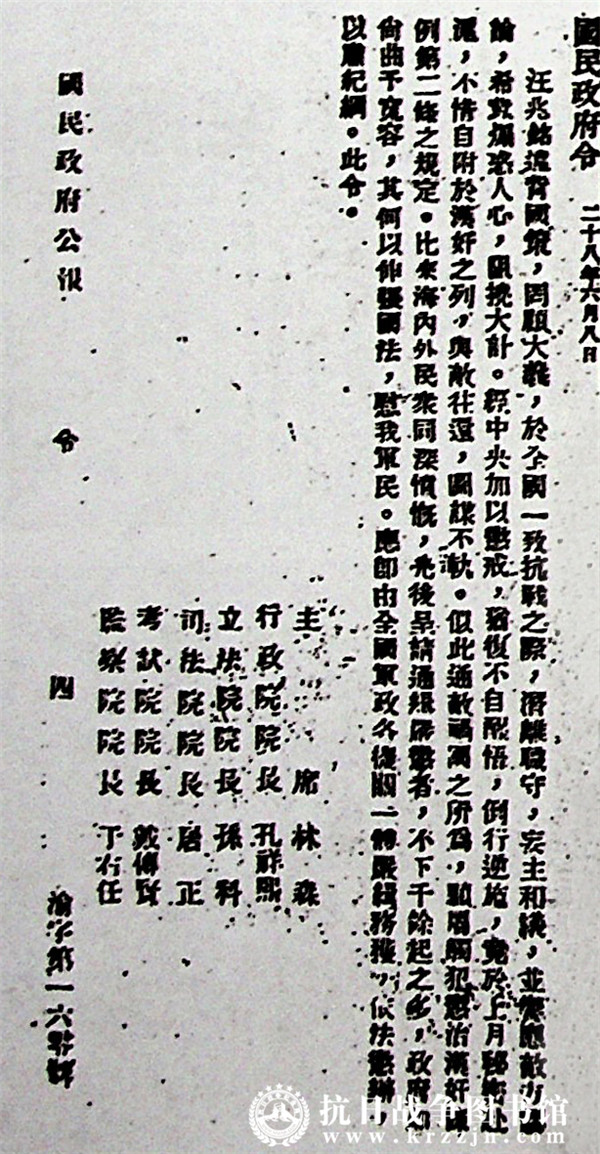 國民政府令　二十八年六月八日
汪兆銘違背國策，罔顧大義，於全國一致抗戰之際，潛離職守，妄主和議，並響應敵方謬
論，希冀煽惑人心，阻撓大計。經中央加以懲戒，猶復不自醒悟，倒行逆施，竟於上月秘密赴
滬，不惜自附於漢奸之列，與敵往還，圖謀不軌。似此通敵禍國之所為，顯屬觸犯懲治漢奸條
例第二條之規定。比來海內外民衆同深憤慨，先後呈請通緝嚴懲者，不下千餘起之多，政府如
尚曲予寬容，其何以伸張國法，慰我軍民。應即由全國軍政各機關一體嚴緝務獲，依法懲辦，
以肅紀綱。此令。
主席 林森
行政院院長 孔祥熙
立法院院長 孫科
司法院院長 居正
考試院院長 戴傳賢
監察院院長 于右任
國民政府公報 令 四 渝字第一六零號
抗日战争图书馆
www.krzzjn.com